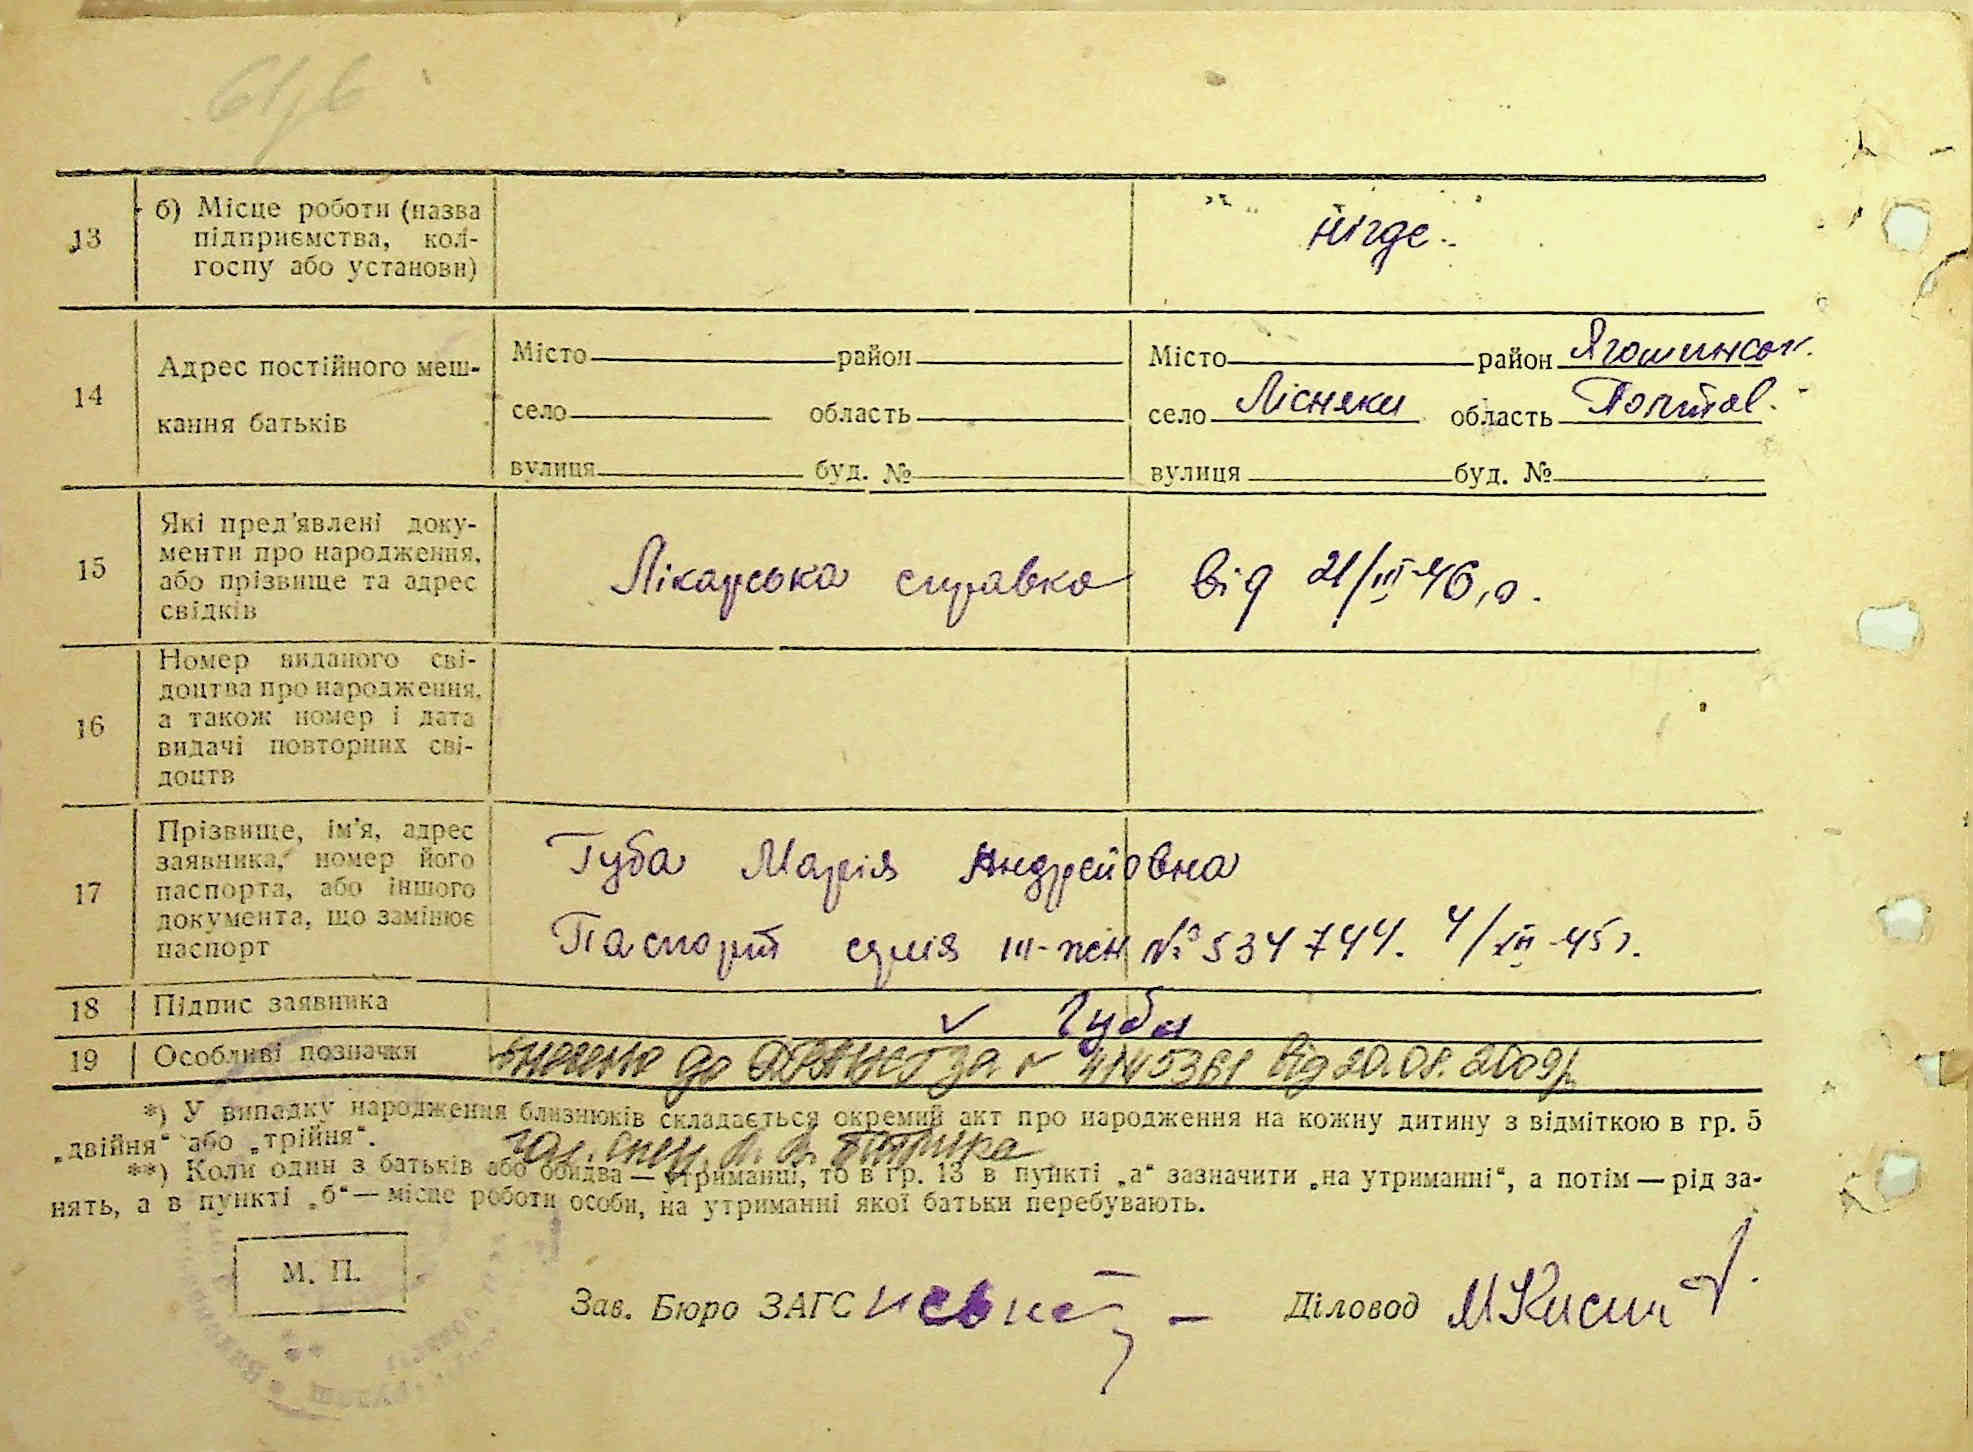 61/6
13
б) Місце роботи (назва
підприємства, кол-
госпу або установи)
нігде.
14
Адрес постійного меш-
кання батьків
Місто район
село область
вулиця буд. №
Місто район Ягошинськ.
село Лісняки область Полтав.
вулиця буд. №
15
Які пред'явлені доку-
менти про народження,
або прізвище та адрес
свідків
Лікарська справка від 21/III-46 р.
16
Номер виданого сві-
доцтва про народження,
а також номер і дата
видачі повторних сві-
доцтв
17
Прізвище, ім'я, адрес
заявника, номер його
паспорта, або іншого
документа, що замінює
паспорт
Губа Марія Андрейовна
Паспорт серія III-жен № 534744. 4/VII-45 г.
18 Підпис заявника
Губа
19 Особливі позначки
внесено до за № 4145361 від 20.08.2009р.
*) У випадку народження близнюків складається окремий акт про народження на кожну дитину з відміткою в гр. 5
„двійня“ або „трійня“.
гол. спец.
**) Коли один з батьків або обидва — утриманці, то в гр. 13 в пункті „а“ зазначити „на утриманні“, а потім — рід за-
нять, а в пункті „б“ — місце роботи особи, на утриманні якої батьки перебувають.
М. П.
Зав. Бюро ЗАГС
Діловод